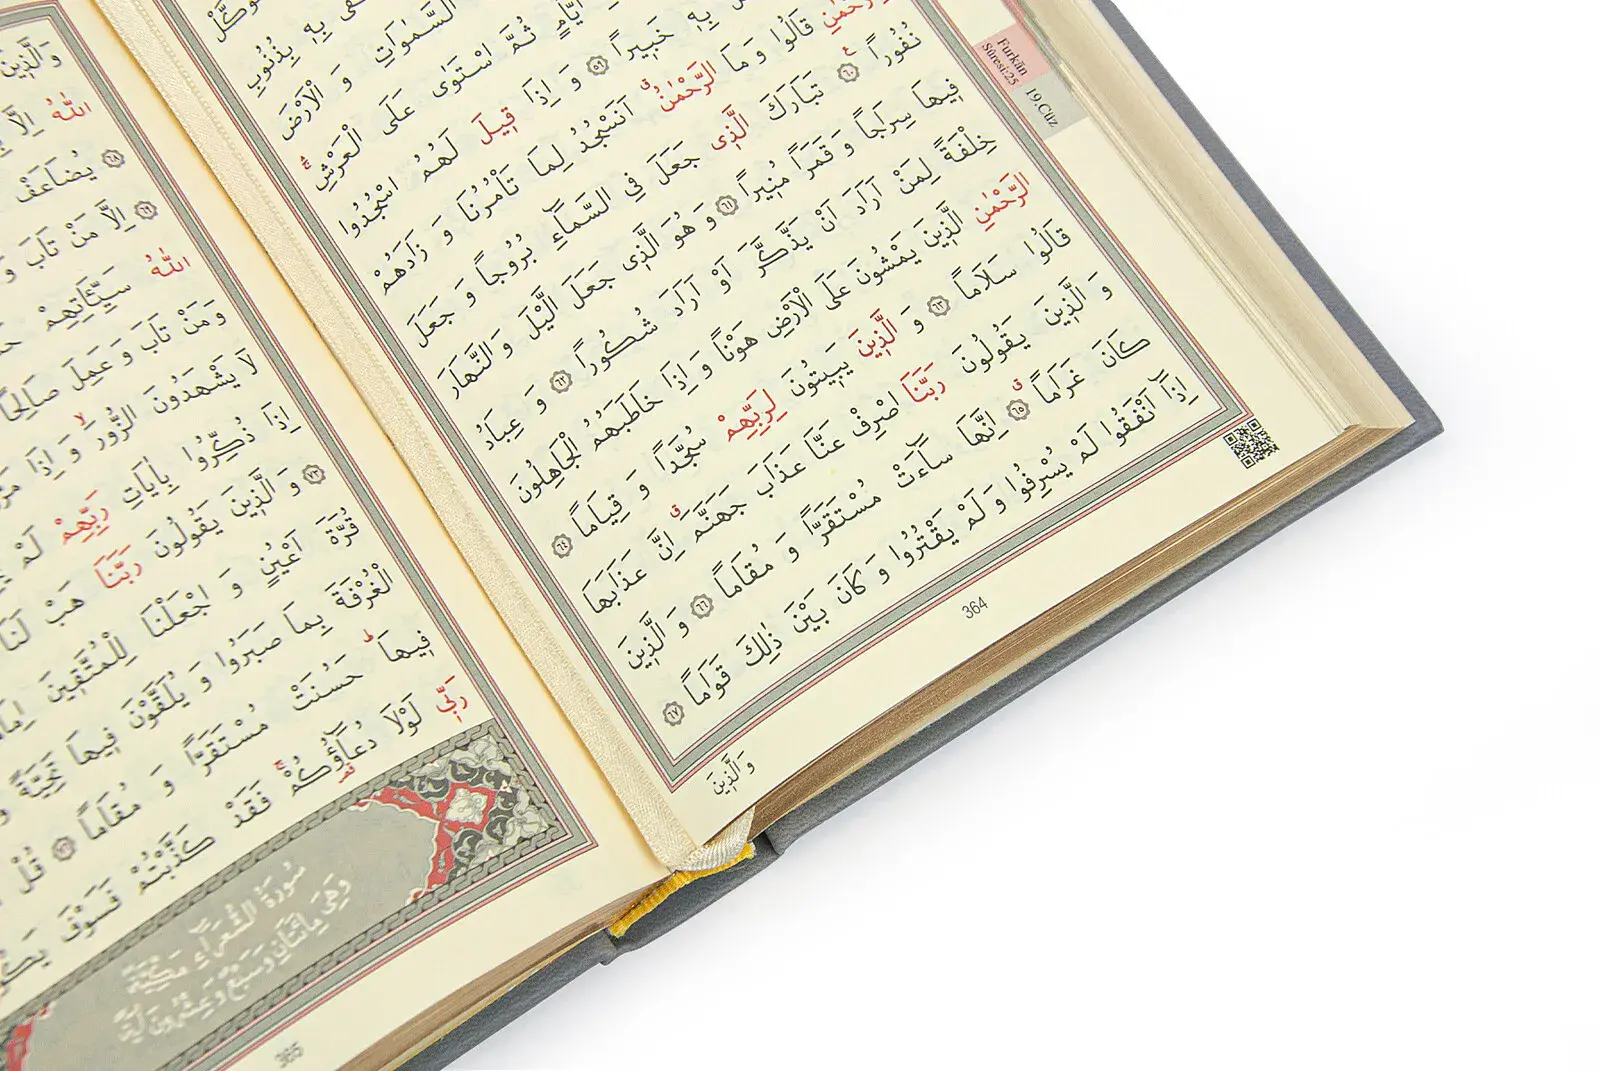 بِهٖ بِذُنُوبِ
السَّمٰوَاتِ وَ الْاَرْضَ
اَيَّامٍ ثُمَّ اسْتَوٰى عَلَى الْعَرْشِ
بِهٖ خَبٖيراً ﴿٥٩﴾ وَ اِذَا قٖيلَ لَهُمُ اسْجُدُوا
قَالُوا وَ مَا الرَّحْمٰنُ اَنَسْجُدُ لِمَا تَأْمُرُنَا وَ زَادَهُمْ
نُفُوراً ﴿٦٠﴾ تَبَارَكَ الَّذٖى جَعَلَ فِي السَّمَٓاءِ بُرُوجاً وَ جَعَلَ
فٖيهَا سِرَاجاً وَ قَمَراً مُنٖيراً ﴿٦١﴾ وَ هُوَ الَّذٖى جَعَلَ الَّيْلَ وَ النَّهَارَ
خِلْفَةً لِمَنْ اَرَادَ اَنْ يَذَّكَّرَ اَوْ اَرَادَ شُكُوراً ﴿٦٢﴾ وَ عِبَادُ
الرَّحْمٰنِ الَّذٖينَ يَمْشُونَ عَلَى الْاَرْضِ هَوْناً وَ اِذَا خَاطَبَهُمُ الْجَاهِلُونَ
قَالُوا سَلَاماً ﴿٦٣﴾ وَ الَّذٖينَ يَبٖيتُونَ لِرَبِّهِمْ سُجَّداً وَ قِيَاماً ﴿٦٤﴾
وَ الَّذٖينَ يَقُولُونَ رَبَّنَا اصْرِفْ عَنَّا عَذَابَ جَهَنَّمَ اِنَّ عَذَابَهَا
كَانَ غَرَاماً ﴿٦٥﴾ اِنَّهَا سَٓاءَتْ مُسْتَقَرًّا وَ مُقَاماً ﴿٦٦﴾ وَ الَّذٖينَ
اِذَٓا اَنْفَقُوا لَمْ يُسْرِفُوا وَ لَمْ يَقْتُرُوا وَ كَانَ بَيْنَ ذٰلِكَ قَوَاماً ﴿٦٧﴾
وَ الَّذٖينَ
364
Furkân
Sûresi:25
19.Cüz
وَ الَّذٖينَ
اللّٰهُ اِلَّا
﴿٦٨﴾ يُضَاعَفْ
﴿٦٩﴾ اِلَّا مَنْ تَابَ وَ
اللّٰهُ سَيِّـَٔاتِهِمْ
وَ مَنْ تَابَ وَ عَمِلَ صَالِحاً
لَا يَشْهَدُونَ الزُّورَ وَ اِذَا
اِذَا ذُكِّرُوا بِاٰيَاتِ رَبِّهِمْ لَمْ
﴿٧٣﴾ وَ الَّذٖينَ يَقُولُونَ رَبَّنَا هَبْ لَنَا
قُرَّةَ اَعْيُنٍ وَ اجْعَلْنَا لِلْمُتَّقٖينَ
الْغُرْفَةَ بِمَا صَبَرُوا وَ يُلَقَّوْنَ فٖيهَا تَحِيَّةً وَ
فٖيهَا حَسُنَتْ مُسْتَقَرًّا وَ مُقَاماً ﴿٧٦﴾ قُلْ
رَبّٖى لَوْلَا دُعَٓاؤُ۬كُمْ فَقَدْ كَذَّبْتُمْ فَسَوْفَ
سُورَةُ الشُّعَرَٓاءِ مَكِّيَّةٌ
وَهِيَ مِائَتَانِ وَسَبْعٌ وَعِشْرُونَ اٰيَةً
365